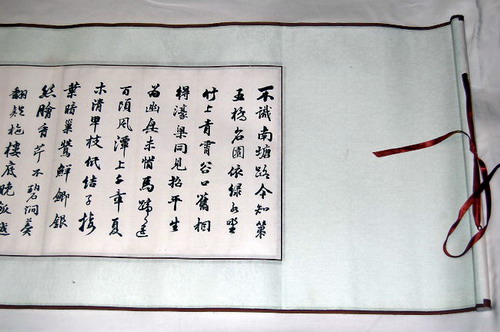 不識南塘路今知第
五橋名園依綠水埜
竹上青霄谷口舊相
得濠梁同見招平生
為幽興未惜馬蹄遙
百頃風潭上千章夏
木清卑枝低結子接
葉暗巢鶯鮮鯽銀
絲膾香芹碧澗羹
翻疑柂樓底晚飯越